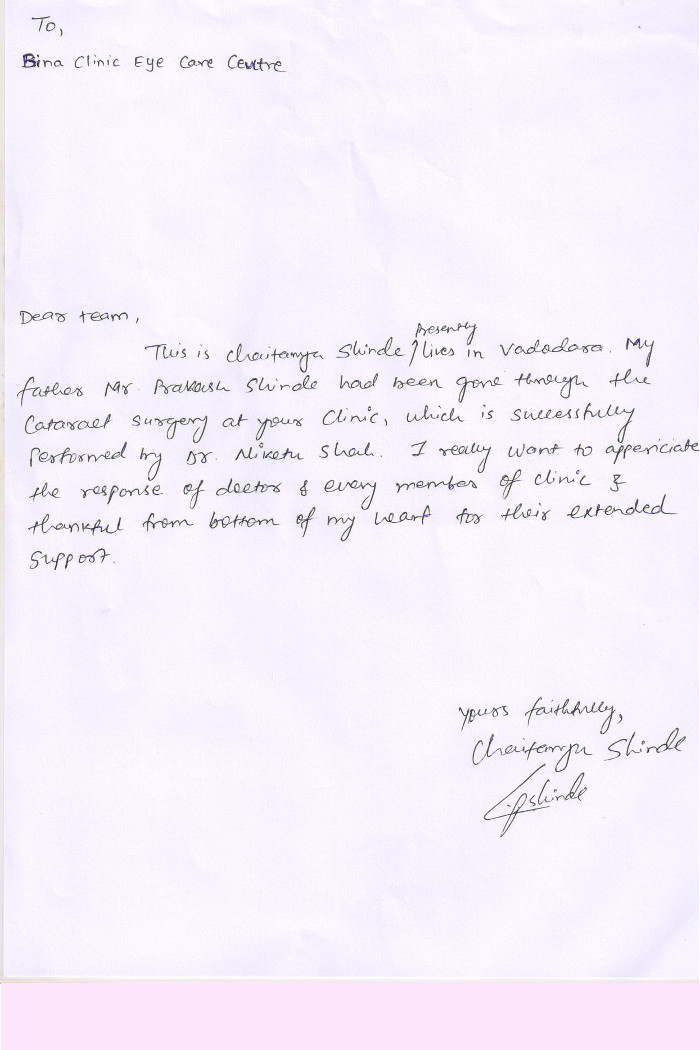 To,
Bina Clinic Eye Care Centre
Dear team,
presently
This is Chaitanya Shinde / lives in Vadodara. My
father Mr. Prakash Shinde had been gone through the
Cataract surgery at your Clinic, which is successfully
Performed by Dr. Niketu Shah. I really want to appericiate
the response of doctor & every member of clinic &
thankful from bottom of my heart for their extended
Support.
Yours faithfully,
Chaitanya Shinde
cpshinde